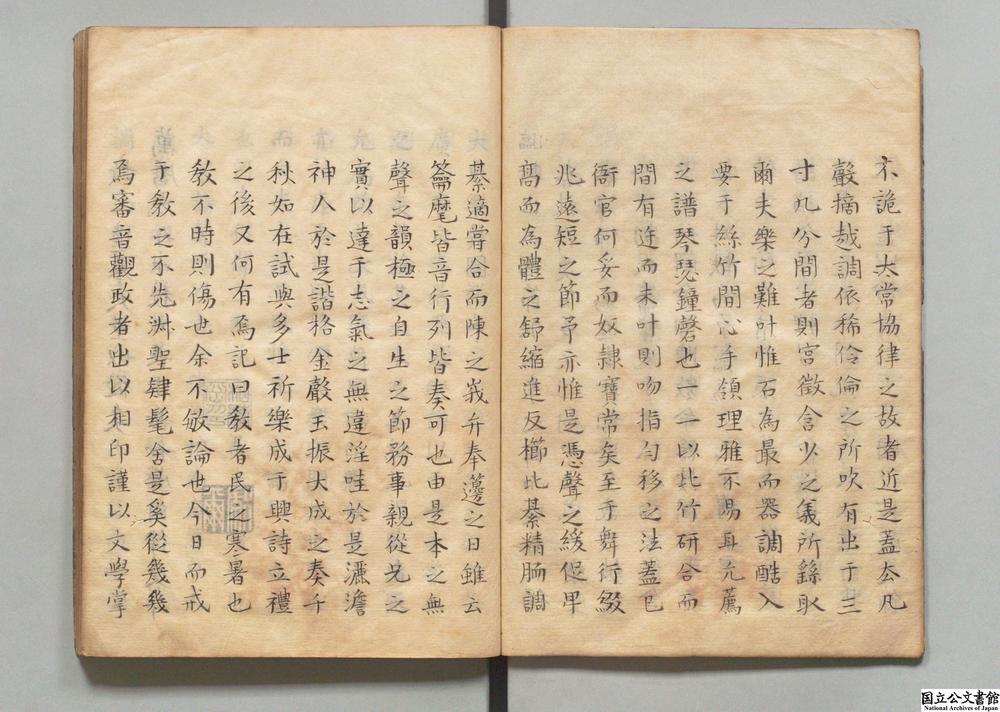 不詭于大常協律之故者近是蓋太凡
嶰摘越調依稀伶倫之所吹有出于三
寸九分間者則宮徵含少之義所繇取
爾夫樂之難叶惟石為最而器調酷入
要于絲竹間心手領理雅不易耳尤薦
之譜琴瑟鐘磬也一一以比竹研合而
間有迕而未叶則吻指勻移之法蓋巳
衙官何妥而奴隸寶常矣至于舞行綴
兆遠短之節予亦惟是憑聲之緩促卑
高而為體之舒縮進反櫛比綦精腼調
綦適嘗合而陳之峩弁奉籩之日雖云
籥麾皆音行列皆奏可也由是本之無
聲之韻極之自生之節務事親從兄之
實以達于志氣之無違淫哇於是灑澹
神人於是諧格金聲玉振大成之奏千
秋如在試與多士祈樂成于興詩立禮
之後又何有焉記曰教者民之寒暑也
教不時則傷也余不敏論也今日而戒
于教之不先泮聖肄髦舍是奚從幾幾
焉審音觀政者出以相印謹以文學掌
国立公文書館
National Archives of Japan